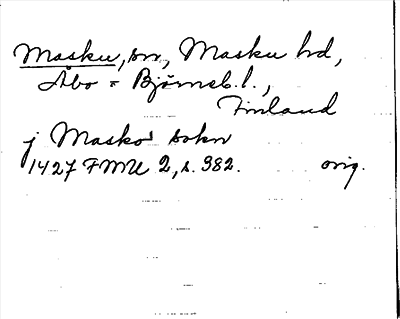 Masku, sn, Masku hd,
Åbo = Björneb. l.,
Finland
j Masko sokn
1427 FMU 2, s. 382. orig.